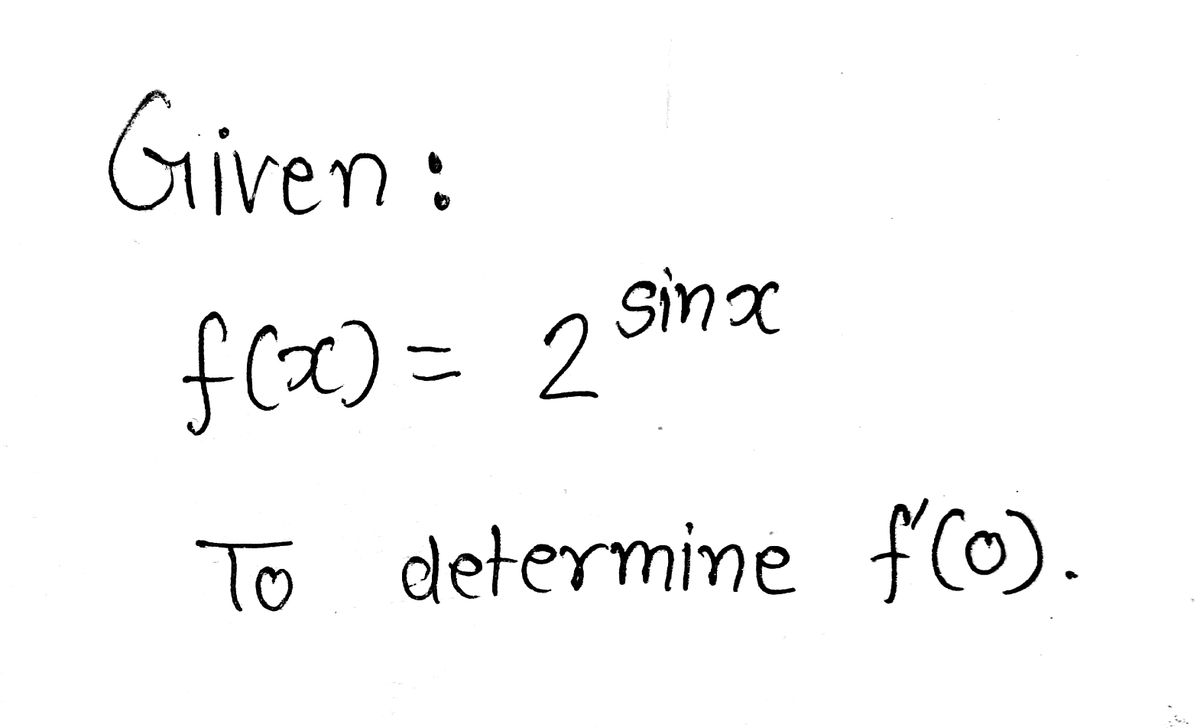 Given :
f(x) = 2^sinx
To determine f'(0).